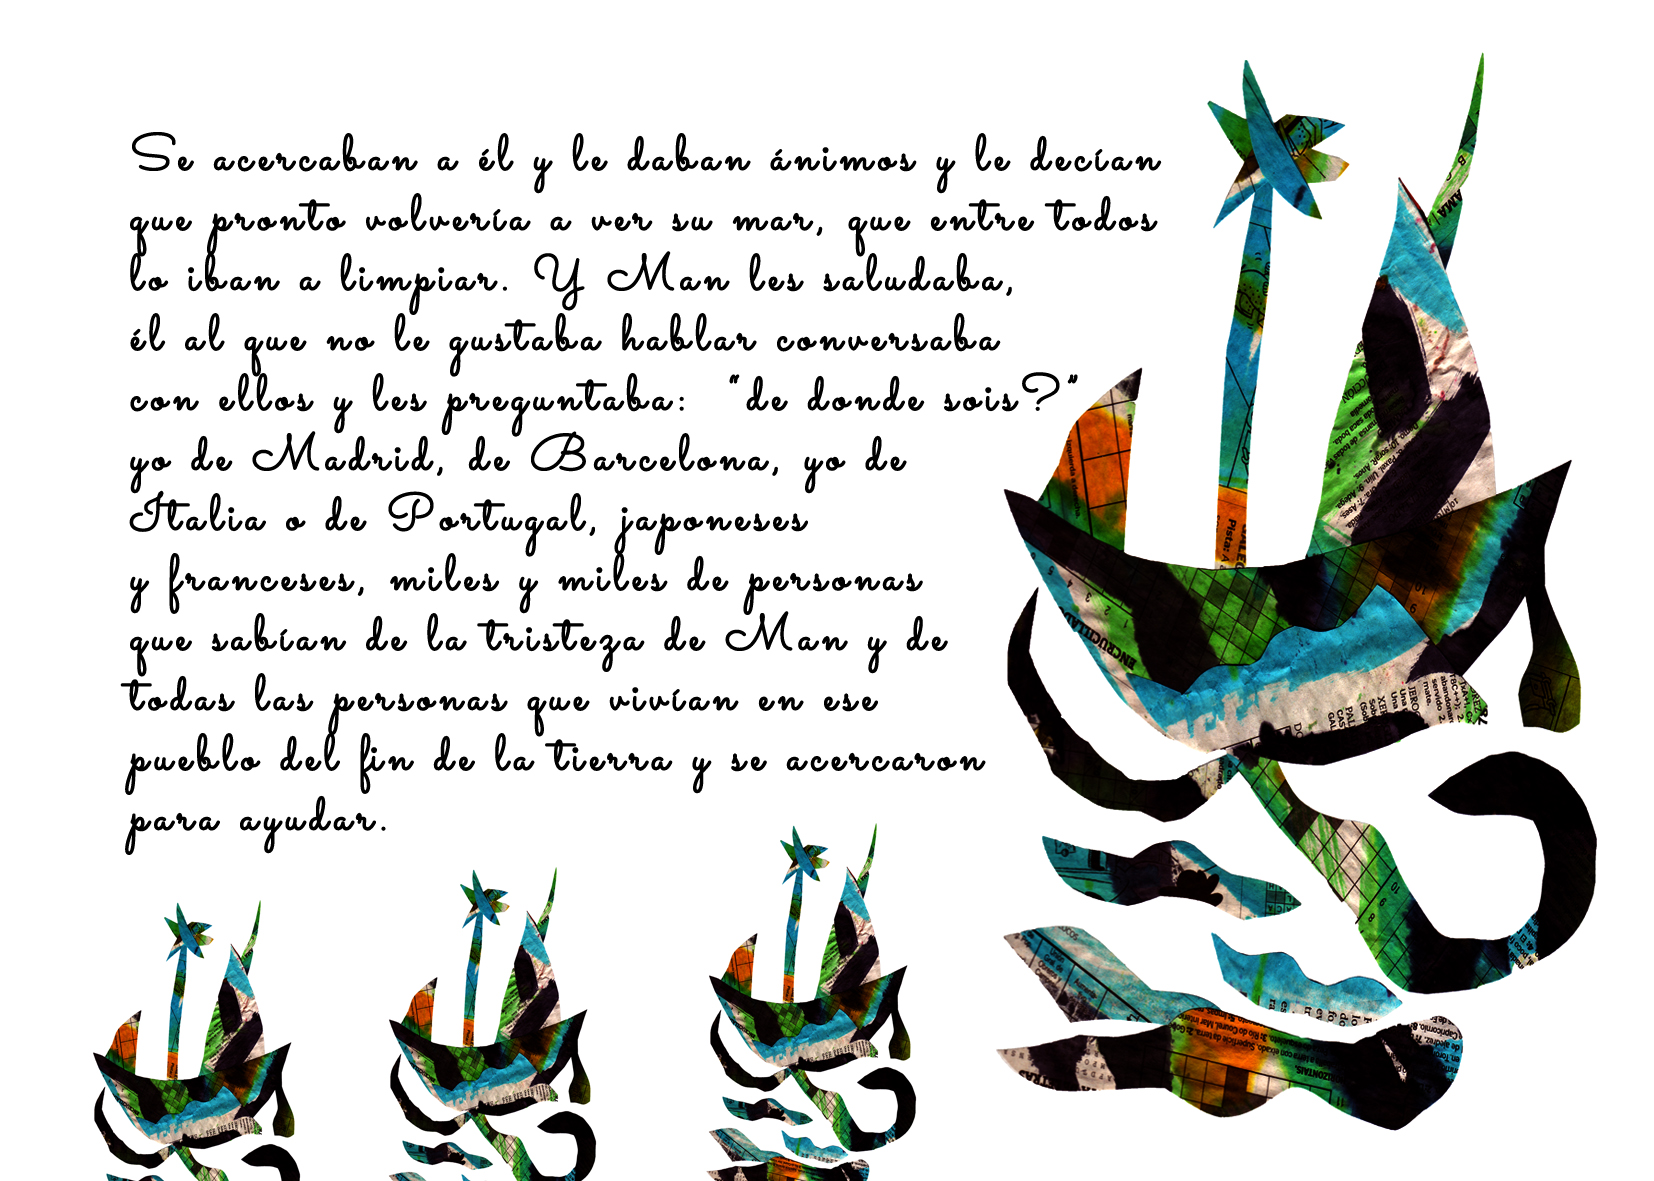 Se acercaban a él y le daban ánimos y le decían
que pronto volvería a ver su mar, que entre todos
lo iban a limpiar. Y Man les saludaba,
él al que no le gustaba hablar conversaba
con ellos y les preguntaba: "de donde sois?"
yo de Madrid, de Barcelona, yo de
Italia o de Portugal, japoneses
y franceses, miles y miles de personas
que sabían de la tristeza de Man y de
todas las personas que vivían en ese
pueblo del fin de la tierra y se acercaron
para ayudar.